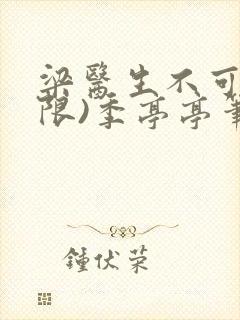 梁醫生不可
限)季亭亭筆
鍾伏荣